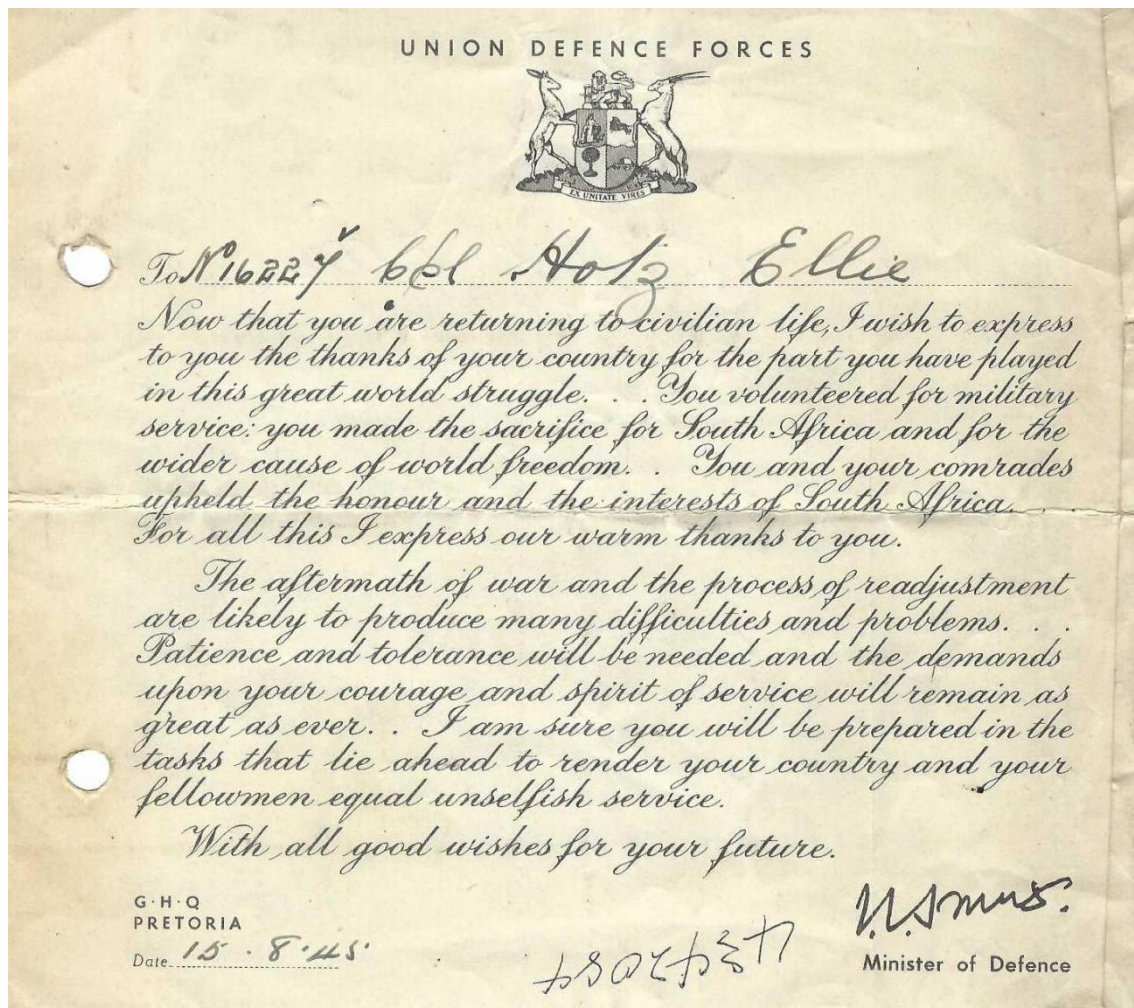 UNION DEFENCE FORCES
EX UNITATE VIRES
To Nº 16227 Cpl Holz Ellie
Now that you are returning to civilian life, I wish to express
to you the thanks of your country for the part you have played
in this great world struggle. . . You volunteered for military
service: you made the sacrifice for South Africa and for the
wider cause of world freedom. . You and your comrades
upheld the honour and the interests of South Africa. . .
For all this I express our warm thanks to you.
The aftermath of war and the process of readjustment
are likely to produce many difficulties and problems. . .
Patience and tolerance will be needed and the demands
upon your courage and spirit of service will remain as
great as ever. . I am sure you will be prepared in the
tasks that lie ahead to render your country and your
fellowmen equal unselfish service.
With all good wishes for your future.
G·H·Q
PRETORIA
Date 15.8.45
Minister of Defence